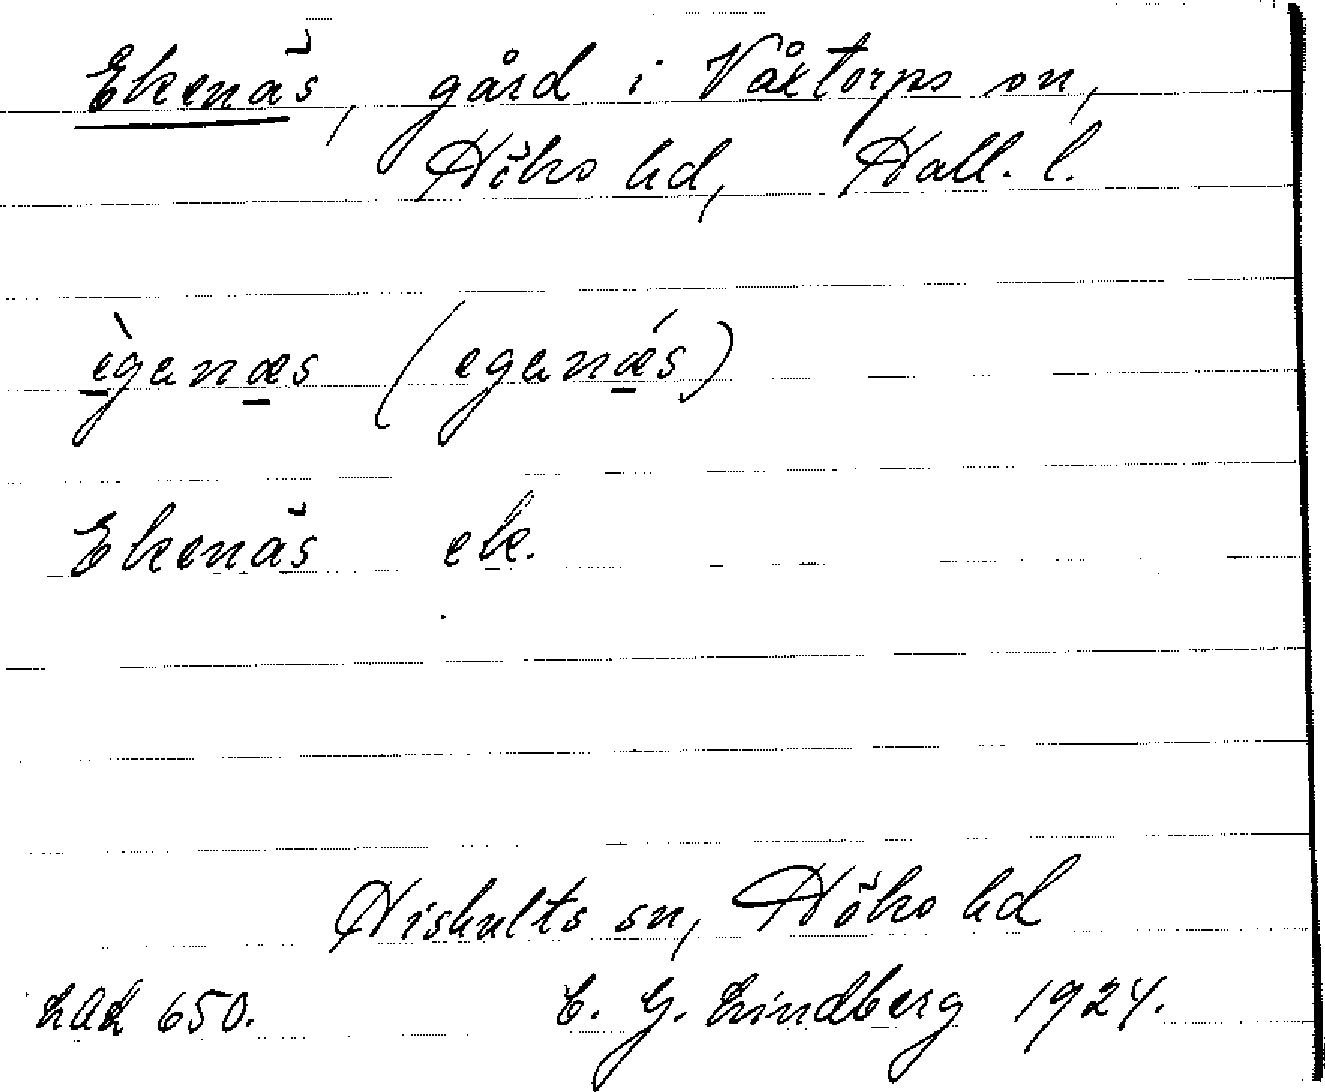 Ekenäs, gård i Våxtorps sn,
Höks hd, Hall. l.
ègenæs (egenǽs)
Ekenäs ek.
Hishults sn, Höks hd
LAL 650. C. G. Lindberg 1924.